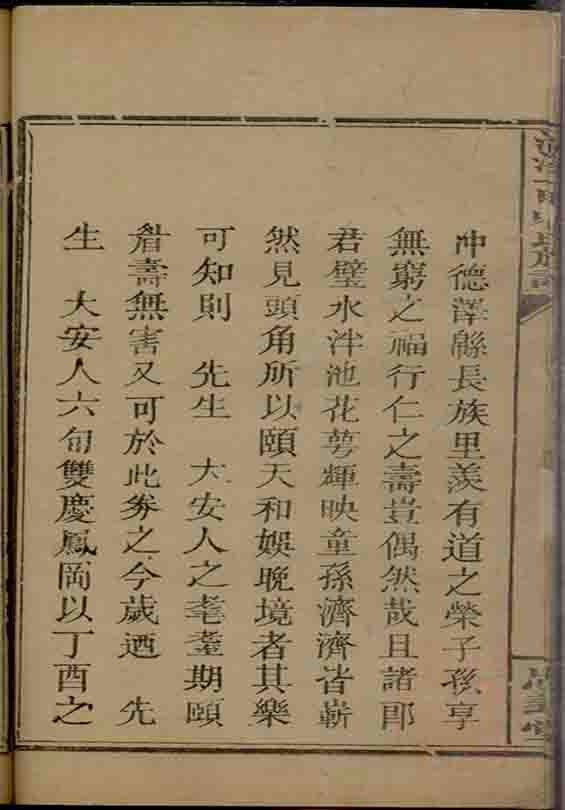 冲德澤緜長族里羨有道之榮子孫享
無窮之福行仁之壽豈偶然哉且諸郎
君璧水泮池花萼輝映童孫濟濟皆嶄
然見頭角所以頤天和娛晚境者其樂
可知則　先生　大安人之耄耋期頤
眉壽無害又可於此券之今歲迺　先
生　大安人六旬雙慶鳳岡以丁酉之